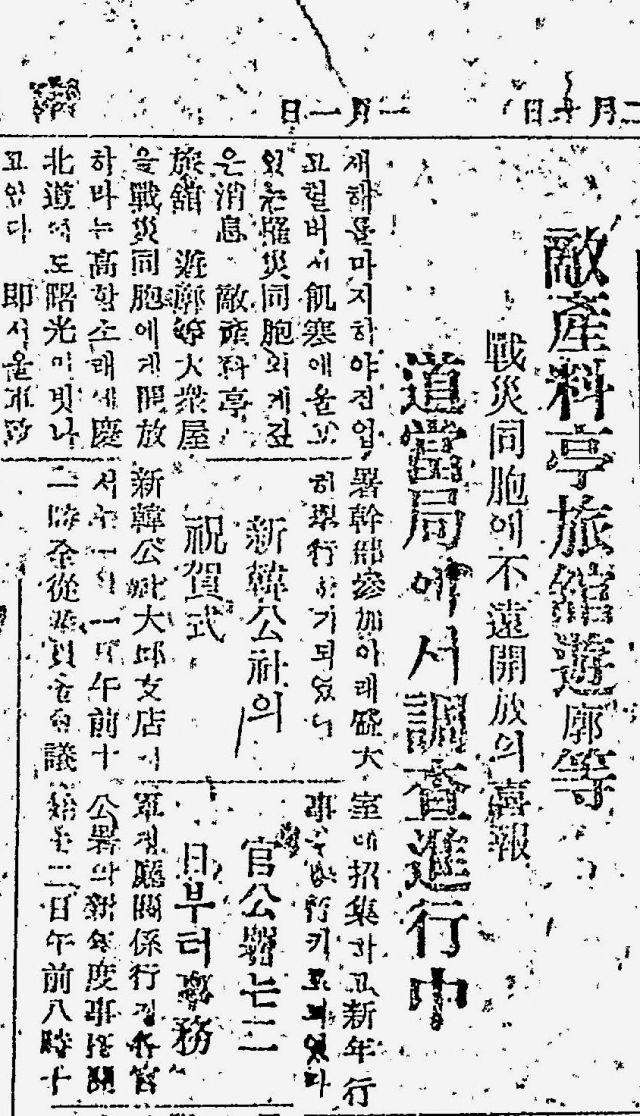 一月一日
敵產料亭旅館遊廓等
戰災同胞에不遠開放의喜報
道當局에서調査進行中
새해를마지하야전업
고헐버서飢寒에울고
있는罹災同胞의게긴
은消息 敵產料亭
旅舘 遊廓等大衆屋
을戰災同胞에게開放
하라는高황소래에慶
北道에도曙光이빗나
고있다 即서울
署幹部參加아래盛大
히擧行하기되였다
新韓公社의
祝賀式
新韓公社大邱支店에
서는一月一日午前十
一時全從業員을會議
室에招集하고新年行
事를擧行키로되였다
官公署는二
日부터事務
軍政廳關係行政各官
公署의新年度事務開
始는二日午前八時十